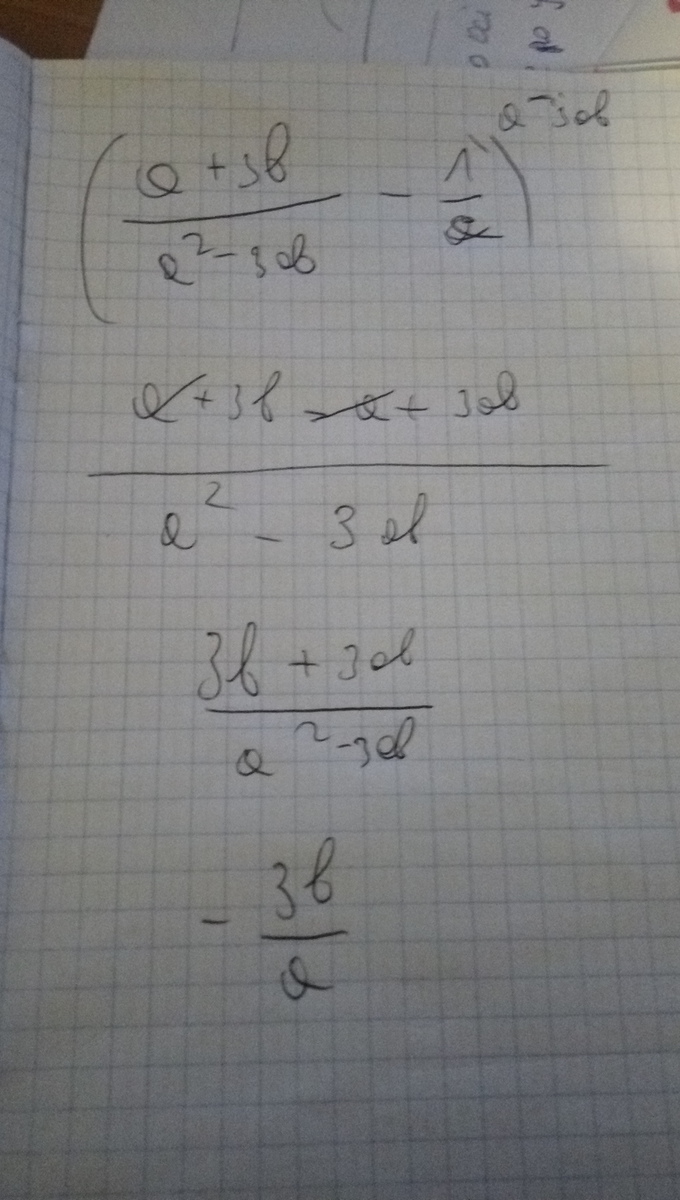 a - 3ab
( (a + 3b)/(a² - 3ab) - 1/a )
(a + 3b - a + 3ab)/(a² - 3ab)
(3b + 3ab)/(a² - 3ab)
- 3b/a